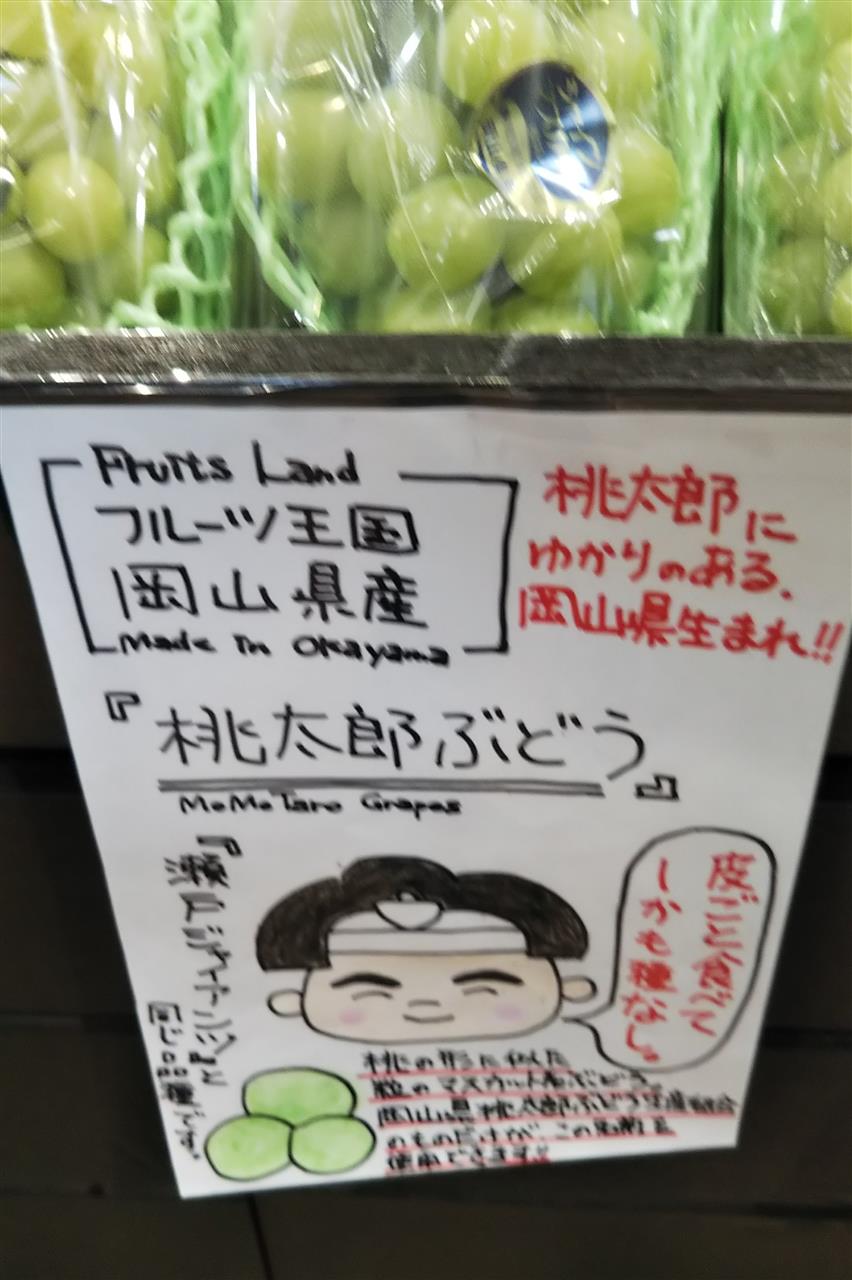 Fruits Land
フルーツ王国
岡山県産
Made In Okayama
桃太郎に
ゆかりのある、
岡山県生まれ!!
『桃太郎ぶどう』
MoMoTaro Grapes
『瀬戸ジャイアンツ』と
同じ品種です。
皮ごと食べて
しかも種なし。
桃の形に似た
粒のマスカット系ぶどう。
岡山県桃太郎ぶどう生産組合
のものだけが、この名前を
使用できます!!